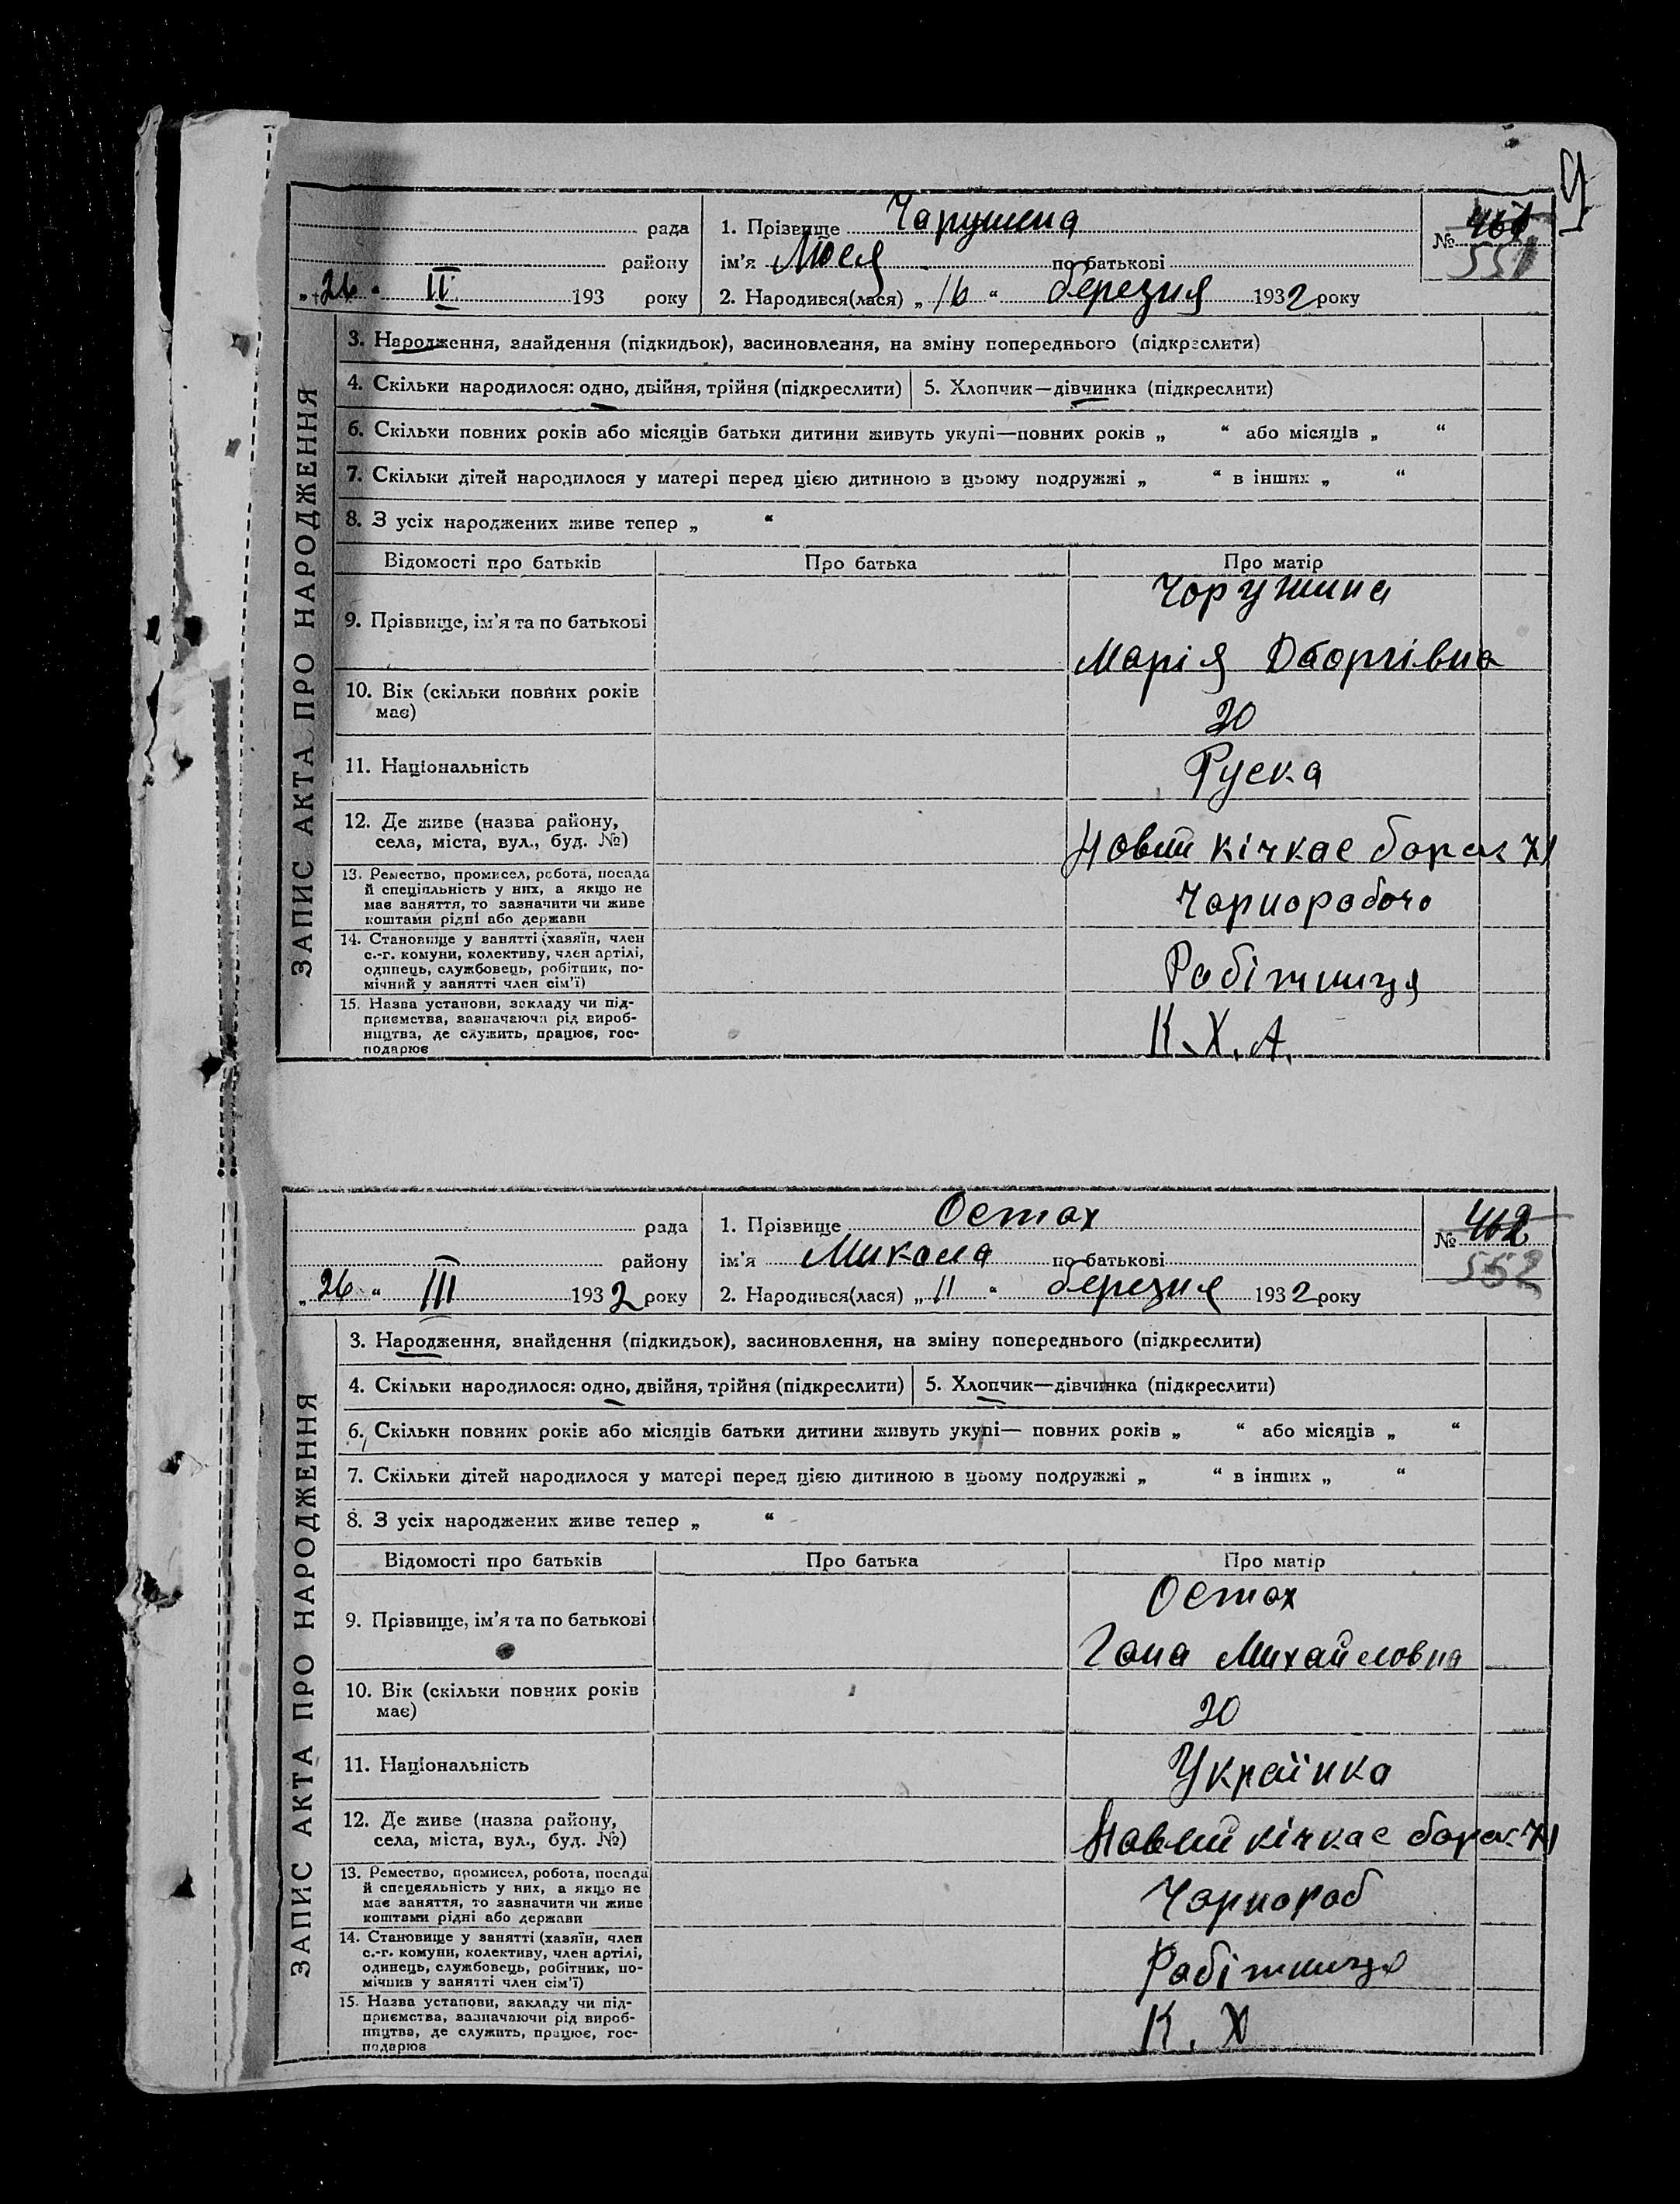 рада
району
„26“ II 193 року
1. Прізвище Чарушина
ім'я Люся по батькові
2. Народився(лася) „16“ березня 1932 року
№ 461
551
ЗАПИС АКТА ПРО НАРОДЖЕННЯ
3. Народження, знайдення (підкидьок), засиновлення, на зміну попереднього (підкреслити)
4. Скільки народилося: одно, двійня, трійня (підкреслити) 5. Хлопчик—дівчинка (підкреслити)
6. Скільки повних років або місяців батьки дитини живуть укупі—повних років „ “ або місяців „ “
7. Скільки дітей народилося у матері перед цією дитиною в цьому подружжі „ “ в інших „ “
8. З усіх народжених живе тепер „ “
Відомості про батьків Про батька Про матір
9. Прізвище, ім'я та по батькові
Чорушина
Марія
10. Вік (скільки повних років
має)
20
11. Національність
Руска
12. Де живе (назва району,
села, міста, вул., буд. №)
Новий кічкас борак 71
13. Ремество, промисел, робота, посада
й спеціяльність у них, а якщо не
має заняття, то зазначити чи живе
коштами рідні або держави
Чорноробочо
14. Становище у занятті (хазяїн, член
с.-г. комуни, колективу, член артілі,
одинець, службовець, робітник, по-
мічний у занятті член сім'ї)
Робітниця
15. Назва установи, закладу чи під-
приємства, зазначаючи рід вироб-
ництва, де служить, працює, гос-
подарює
К.Х.А.
рада
району
„26“ III 1932 року
1. Прізвище Остах
ім'я Микола по батькові
2. Народився(лася) „11“ березня 1932 року
№ 462
552
ЗАПИС АКТА ПРО НАРОДЖЕННЯ
3. Народження, знайдення (підкидьок), засиновлення, на зміну попереднього (підкреслити)
4. Скільки народилося: одно, двійня, трійня (підкреслити) 5. Хлопчик—дівчинка (підкреслити)
6. Скільки повних років або місяців батьки дитини живуть укупі— повних років „ “ або місяців „ “
7. Скільки дітей народилося у матері перед цією дитиною в цьому подружжі „ “ в інших „ “
8. З усіх народжених живе тепер „ “
Відомості про батьків Про батька Про матір
9. Прізвище, ім'я та по батькові
Остах
Гана Михайловна
10. Вік (скільки повних років
має)
20
11. Національність
Українка
12. Де живе (назва району,
села, міста, вул., буд. №)
Новий кічкас борак 71
13. Ремество, промисел, робота, посада
й спецеяльність у них, а якщо не
має заняття, то зазначити чи живе
коштами рідні або держави
Чорнороб
14. Становище у занятті (хазяїн, член
с.-г. комуни, колективу, член артілі,
одинець, службовець, робітник, по-
мічник у занятті член сім'ї)
Робітниця
15. Назва установи, закладу чи під-
приємства, зазначаючи рід вироб-
ництва, де служить, працює, гос-
подарює
К.Х